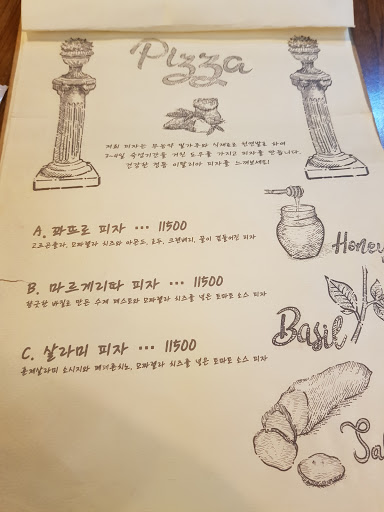 Pizza
저희 피자는 무농약 밀가루와 식재료로 천연발효 하여
2~4일 숙성기간을 거친 도우를 가지고 피자를 만듭니다.
건강한 정통 이탈리아 피자를 느껴보세요!
A. 콰프로 피자 ··· 11500
고르곤졸라, 모짜렐라 치즈와 아몬드, 호두, 크랜베리, 꿀이 곁들어진 피자
Honey
B. 마르게리따 피자 ··· 11500
향긋한 바질로 만든 수제 페스토와 모짜렐라 치즈를 넣은 토마토 소스 피자
Basil
C. 살라미 피자 ··· 11500
훈제살라미 소시지와 페퍼론치노, 모짜렐라 치즈를 넣은 토마토 소스 피자
Sal